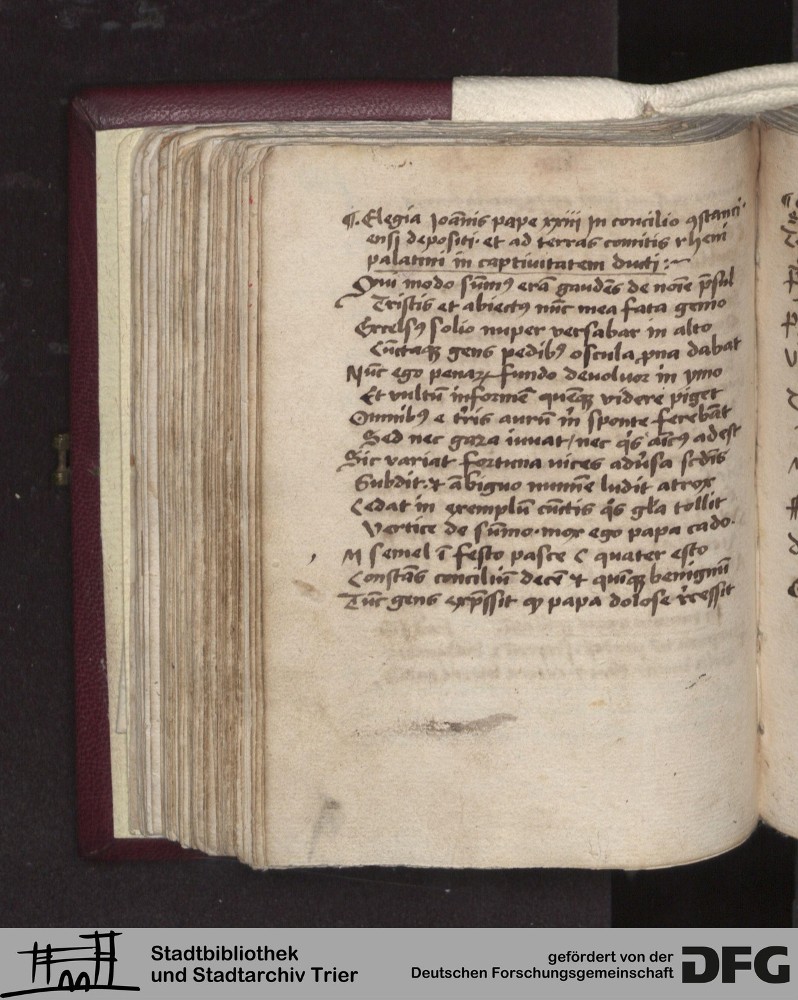 ¶. Elegia Ioānis pape xxiii in concilio ꝯstanci
ensi depositi · et ad terras comitis rheni
palatini in captiuitatem ducti :~
Qui modo sūmꝰ erā gaudēs de noīe p̄sul
Tristis et abiectꝰ nūc mea fata gemo
Excelsꝰ solio nuper versabar in alto
Cūctaqꝫ gens pedibꝰ oscula ꝓna dabat
Nūc ego penaꝝ fundo deuoluor in ymo
Et vultū informē quēqꝫ videre piget
Omnibꝰ e tr̄is aurū m̄ sponte ferebāt
Sed nec gaza iuuat / nec qͥs aīcꝰ adest
Sic variat fortuna uices adūsa scd̄is
Subdit ⁊ ābiguo numīe ludit atrox
Cedat in exemplū cūctis qͦs gl̄a tollit
Vertice de sūmo · mox ego papa cado ·
M semel ī festo pasce C quater esto
Constās conciliū decē ⁊ quīqꝫ benignū
Tūc gens exp̄ssit ꝙ papa dolose r̄cessit
Stadtbibliothek
und Stadtarchiv Trier
gefördert von der
Deutschen Forschungsgemeinschaft
DFG